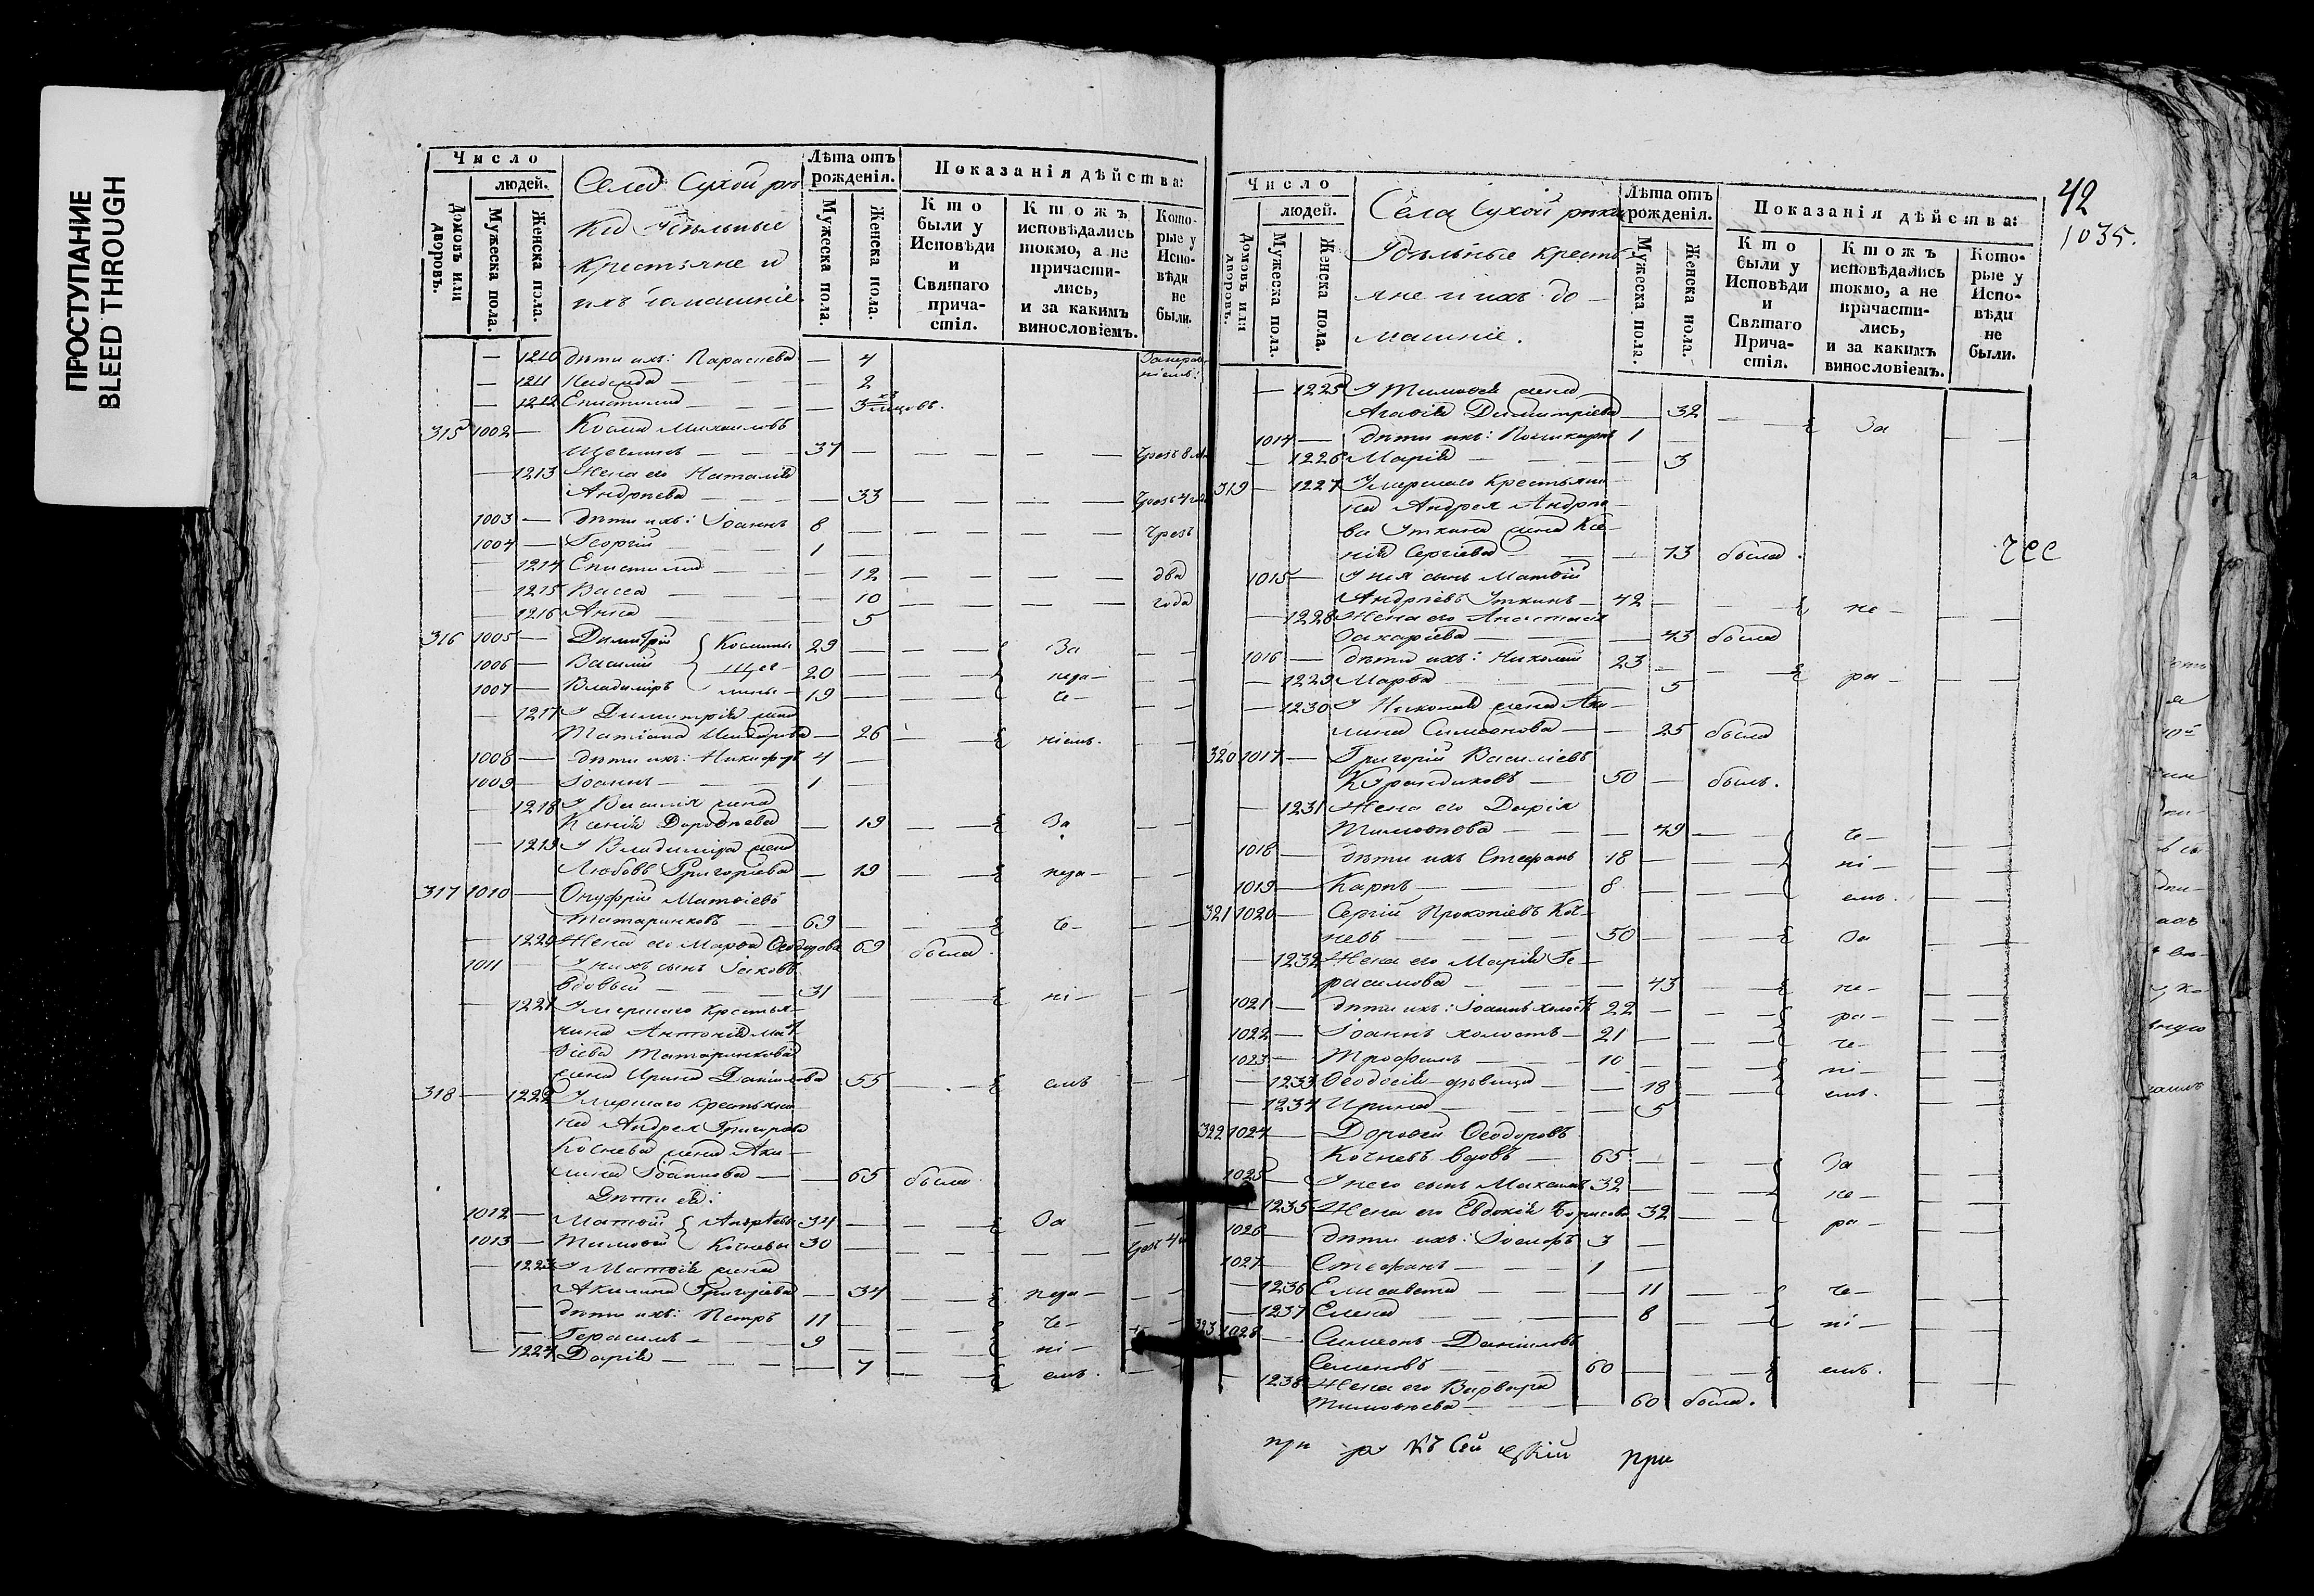 ПРОСТУПАНИЕ
BLEED THROUGH
Число
людей.
Домовъ или дворовъ.
Мужеска пола.
Женска пола.
Села Сухой рѣ
ки Удѣльные
крестьяне и
ихъ домашніе
Лѣта отъ рожденія.
Мужеска пола.
Женска пола.
Показанія дѣйства:
Кто были у Исповѣди и Святаго причастія.
Ктожъ исповѣдались токмо, а не причастились, и за какимъ винословіемъ.
Которые у Исповѣди не были.
— 1210 дѣти ихъ: Параскева — 4
— 1211 — 2
— 1212 Епистимія — 3
315 1002 — Косма Михаиловъ
— 37 — — — — —
— 1213 Жена его Наталія
Андреева — — 33 — — — —
1003 — дѣти ихъ: Іоаннъ 8 — — — — — Чрезъ
1004 — Георгій — 1 —
1214 Епистимія — — 12 — — — — два
1215 Васса — — 10 — — — — года
1216 Анна — 5
316 1005 — Димитрій Космины 29 — — — За — —
1006 — Василій 20 — — — нера — —
1007 — Владиміръ 19 — — — че — —
— 1217 У Димитрія жена
Татіана — 26 — ніемъ. — —
1008 — дѣти ихъ: Никифоръ 4 —
1009 — Іоаннъ — 1 —
— 1218 У Василія жена
Ксенія Дороѳеева — 19 — За — —
— 1219 У Владиміра жена
Любовь Григоріева — 19 — нера — —
317 1010 — Онуфрій Матвіевъ
Татаринковъ — 69 — — че — —
— 1220 Жена его Марѳа Ѳеодорова 69 была
1011 — У нихъ сынъ Іаковъ
вдовый — 31 — — — ні — —
— 1221 Умершаго крестья-
нина Антонія Мат
ѳіева Татаринкова
жена Ирина Даніилова 55 — — емъ — —
318 — 1222 Умершаго крестьяни
на Андрея Григорьева
Кочнева жена Аки-
лина Іоаннова — — 65 была
Дѣти ея:
1012 — Матѳій Андрѣевы 34 — — За — —
1013 — Тимоѳей Кочневы 30 — — — —
— 1223 У Матѳія жена
Акилина Григоріева — 34 — — нера — —
— дѣти ихъ: Петръ 11 — — че — —
— Герасимъ — 9 — — ні —
— 1224 Дарія — — — 7 — — емъ. — —
42
1035.
Число
людей.
Домовъ или дворовъ.
Мужеска пола.
Женска пола.
Села Сухой рѣки
Удѣльные кресть-
яне и ихъ до-
машніе.
Лѣта отъ рожденія.
Мужеска пола.
Женска пола.
Показанія дѣйства:
Кто были у Исповѣди и Святаго Причастія.
Ктожъ исповѣдались токмо, а не причастились, и за какимъ винословіемъ.
Которые у Исповѣди не были.
— 1225 У Тимоѳея жена
Агаѳія Димитріева — 32 — — За — —
1014 — дѣти ихъ: Поликарпъ 1 —
— 1226 Марія — — — 3
319 — 1227 Умершаго крестьяни-
на Андрея Андрее-
ва Уткина жена Ксе-
нія Сергіева — — 73 была.
1015 — У нея сынъ Матѳій
Андреевъ Уткинъ — 42 — — — не — —
— 1228 Жена его Анастасія
Захаріева — — 43 была
1016 — дѣти ихъ: Николай 23 — — — ра — —
— 1229 Марѳа — 5
— 1230 У Николая жена Аки-
лина Симеонова — — 25 была
320 1017 — Григорій Василіевъ
Курандиковъ — 50 — былъ.
— 1231 Жена его Дарія
Тимоѳеева — — 49 — — че — —
1018 — дѣти ихъ Стефанъ 18 — — — ні — —
1019 — Карпъ — — 8 — — — емъ. — —
321 1020 — Сергій Прокопіевъ Коч-
невъ — — 50 — — — За — —
— 1232 Жена его Марія Ге-
расимова — — 43 — — не — —
1021 — дѣти ихъ: Іоаннъ холостъ 22 — — — ра — —
1022 — Іоаннъ холостъ — 21 — — — че — —
1023 — Трофимъ — — 10 — — — ні — —
— 1233 Ѳеодосія дѣвица — — 18 — — емъ. — —
— 1234 Ирина — — — 5
322 1024 — Дороѳей Ѳеодоровъ
Кочневъ вдовъ — 65 — — — За — —
1025 — У него сынъ Михаилъ 32 — — — не — —
— 1235 Жена его Евдокія Борисова 32 — — ра — —
1026 — дѣти ихъ: Іосифъ 3 —
1027 — Стефанъ — — 1 —
— 1236 Елисавета — — — 11 — — че — —
— 1237 Елена — — — 8 — — ні — —
323 1028 — Симеонъ Даніиловъ
Семеновъ — — 60 — — — емъ. — —
— 1238 Жена его Варвара
Тимоѳеева — — — 60 была.